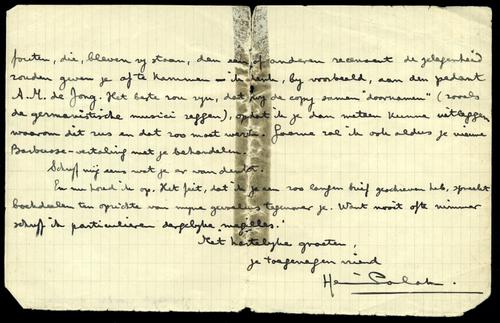 fouten, die, bleven zij staan, den een of anderen recensent de gelegenheid
zouden geven je af te kammen – ik denk, bij voorbeeld, aan den pedant
A.M. de Jong. Het beste zou zijn, dat wij de copy samen "doornamen" (zooals
de germanistische musici zeggen), opdat ik je dan meteen kunne uitleggen
waarom dit zus en dat zoo moet wezen. Gaarne zal ik ook aldus je nieuwe
Barbusse-vertaling met je behandelen.
Schrijf mij eens wat je er van denkt.
En nu houd ik op. Het feit, dat ik je een zoo langen brief geschreven heb, spreekt
boekdeelen ten opzichte van mijne gevoelens tegenover je. Want nooit ofte nimmer
schrijf ik particulieren dergelijke
Met hartelijke groeten,
je toegenegen vriend
Henri Polak.